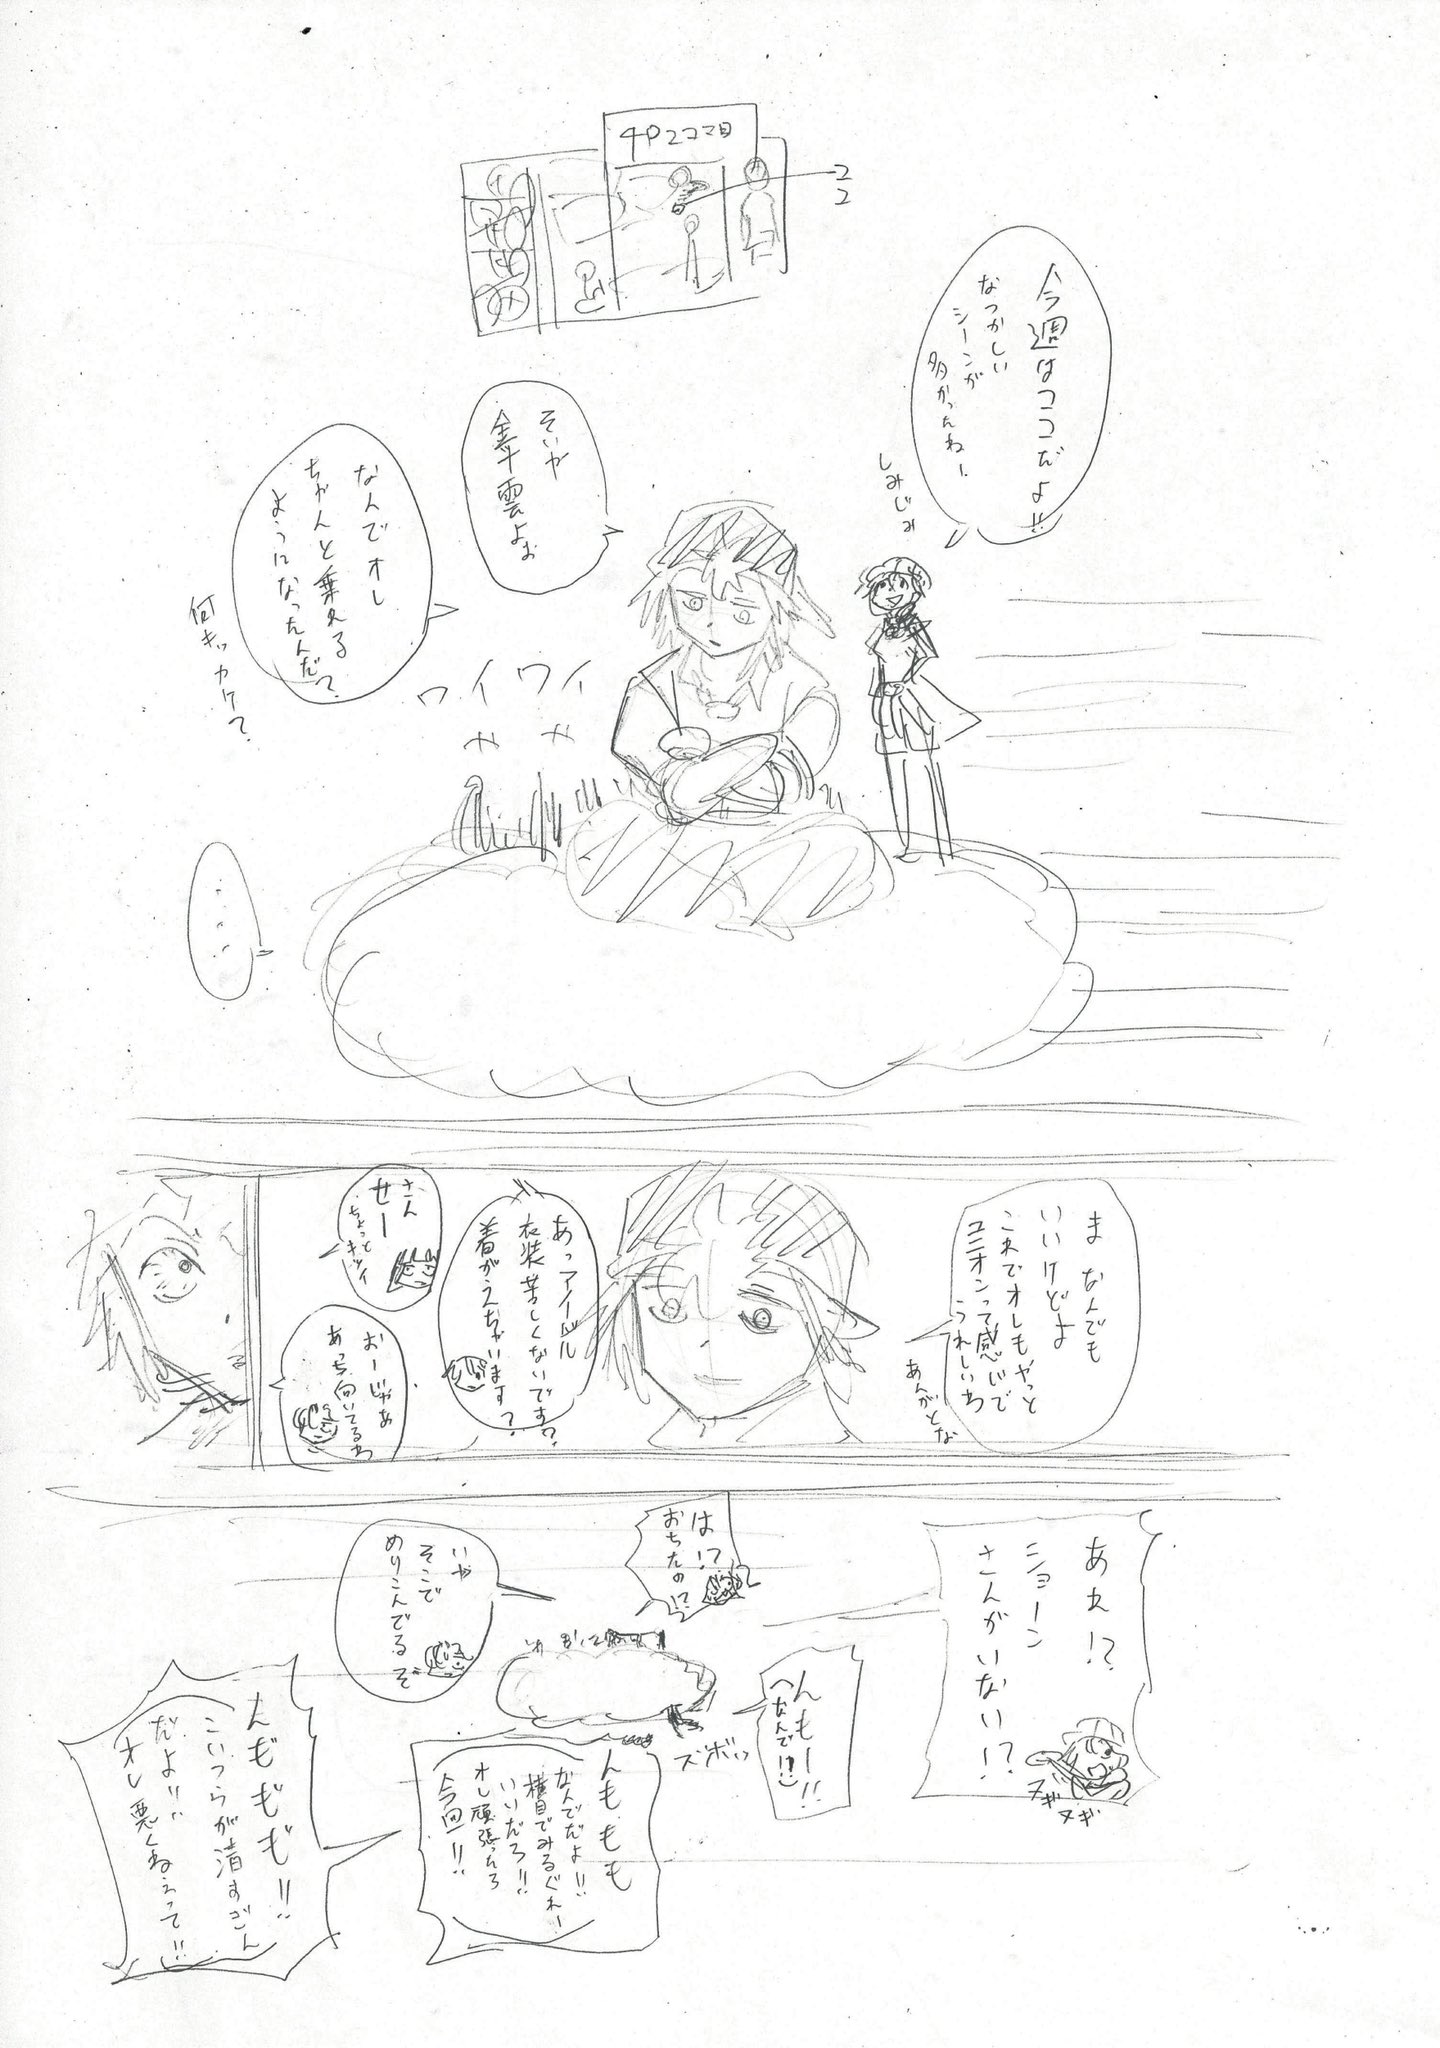 4P2コマ目
ココ
今週はココだよ!!
なつかしい
シーンが
多かったねー
しみじみ
そいや
傘雲よお
なんでオレ
ちゃんと乗れる
ようになったんだ?
何キッカケ?
ワイワイ
や
や
・・・・・
ま なんでも
いいけどよ
これでオレもやっと
ユニオンって感じで
うれしいわ
あんがとな
あっアイドル
衣装苦しくないです?
着がえちゃいます?
さん
せー
ちょっとキツイ
おーじゃあ
あっち向いてるわ
あれ!?
ショーン
さんがいない!?!
ヌギ
ヌギ
は!?
おちたの!?
いや
そこで
めりこんでるぞ
んもー!!
(なんで!!)
ズボッ
んももも
なんでだよ!!
横目でみるぐれー
いいだろ!!
オレ頑張ったろ
今回!!
んももも!!
こいつらが清すぎん
だよ!!
オレ悪くねぇって!!